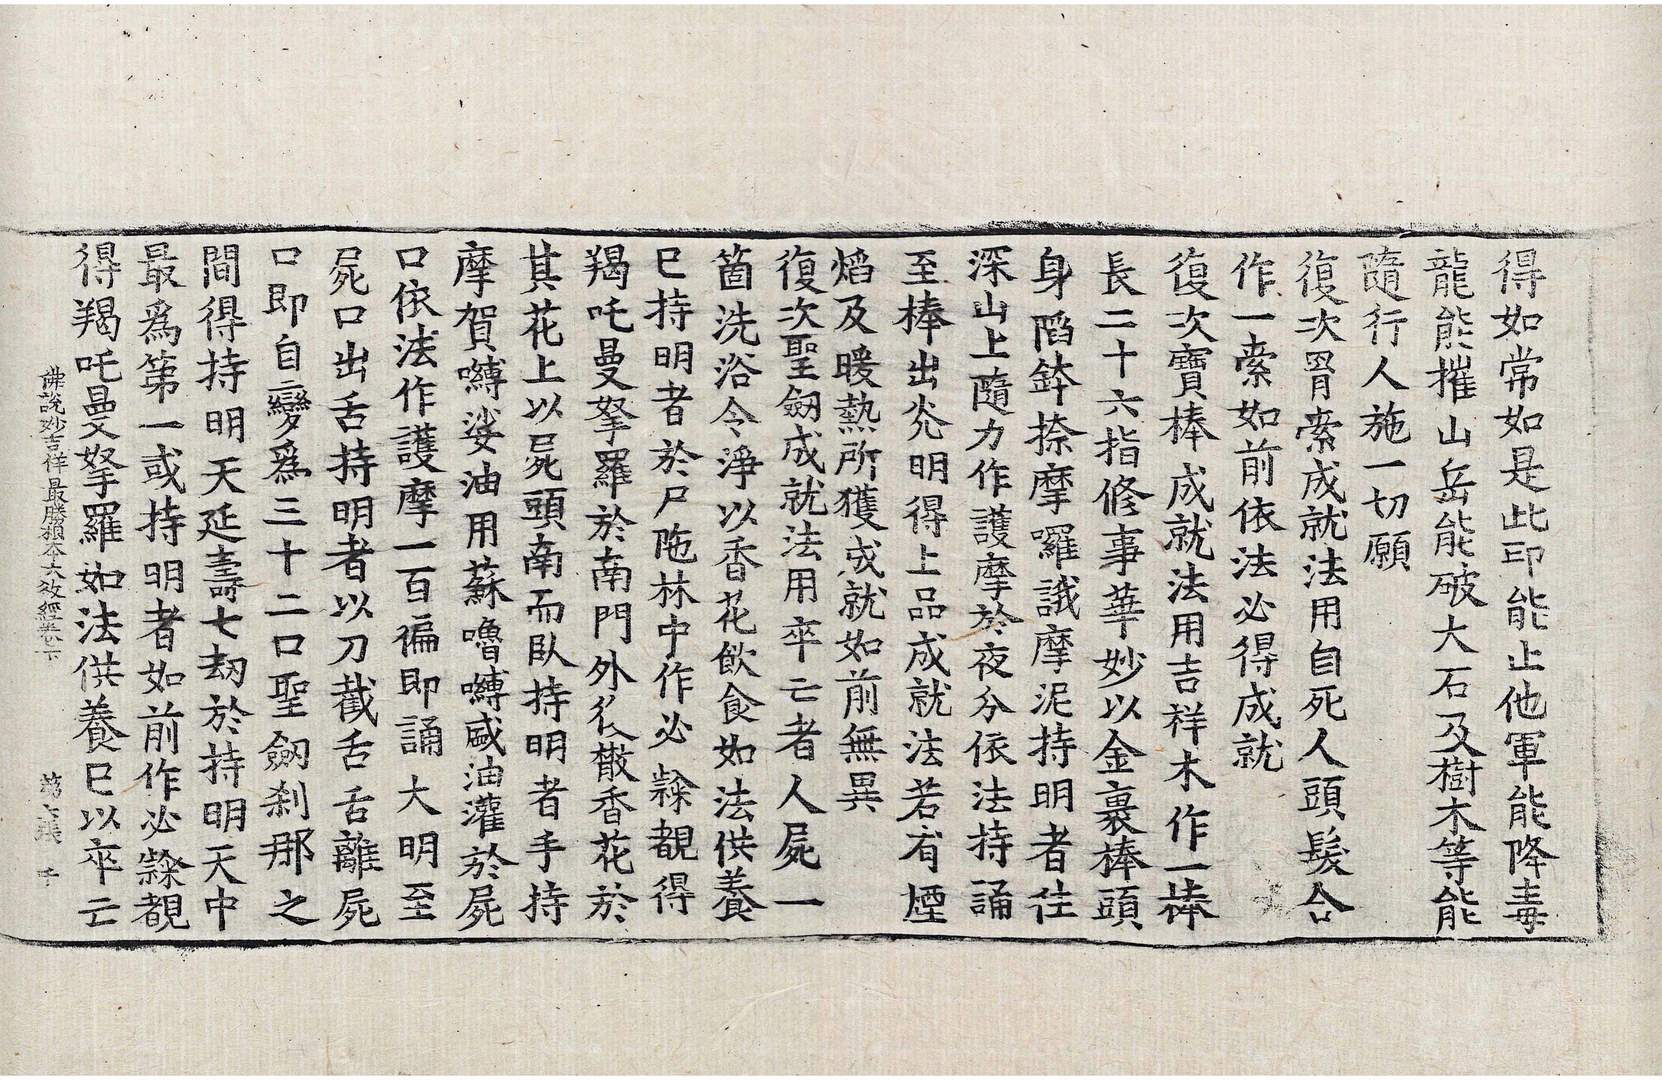 得如常如是此印能止他軍能降毒
龍能摧山岳能破大石及樹木等能
隨行人施一切願
復次罥索成就法用自死人頭髮合
作一索如前依法必得成就
復次寶棒成就法用吉祥木作一棒
長二十六指修事華妙以金裹棒頭
身陷鉢捺摩囉誐摩泥持明者往
深山上隨力作護摩於夜分依法持誦
至棒出光明得上品成就法若有煙
焰及暖熱所獲成就如前無異
復次聖劒成就法用卒亡者人屍一
箇洗浴令淨以香花飲食如法供養
已持明者於尸陁林中作必𥻘覩得
羯吒曼拏羅於南門外衆散香花於
其花上以屍頭南而臥持明者手持
摩賀嚩娑油用蘇嚕嚩盛油灌於屍
口依法作護摩一百徧即誦大明至
屍口出舌持明者以刀截舌舌離屍
口即自變爲三十二口聖劒刹那之
間得持明天延壽七劫於持明天中
最爲第一或持明者如前作必𥻘覩
得羯吒曼拏羅如法供養已以卒亡
佛說妙吉祥最勝根本大教經卷下 第六張 千